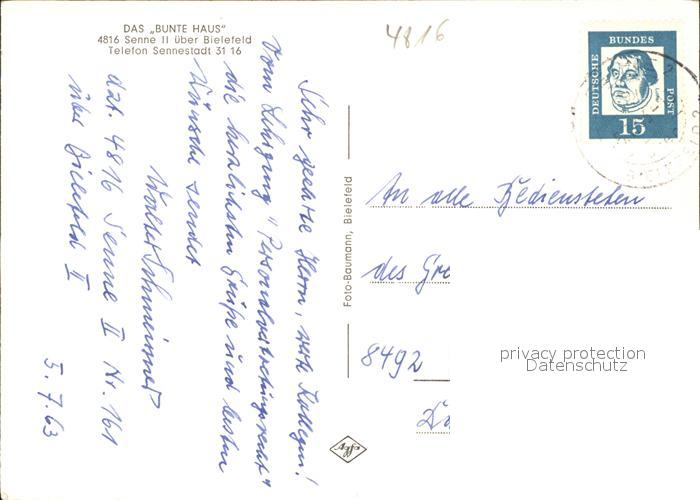 DAS „BUNTE HAUS"
4816 Senne II über Bielefeld
Telefon Sennestadt 31 16
4816
DEUTSCHE
BUNDES
POST
15
Sehr geehrte Herrn, werte Kollegen!
Vom Lehrgang "Personalvertretungsrecht"
die herzlichsten Grüße und besten
Wünsche sendet
Walter
dzt. 4816 Senne II Nr. 161
über Bielefeld II
5.7.63
Foto-Baumann, Bielefeld
Agfa
An alle Bediensteten
des
8492
privacy protection
Datenschutz